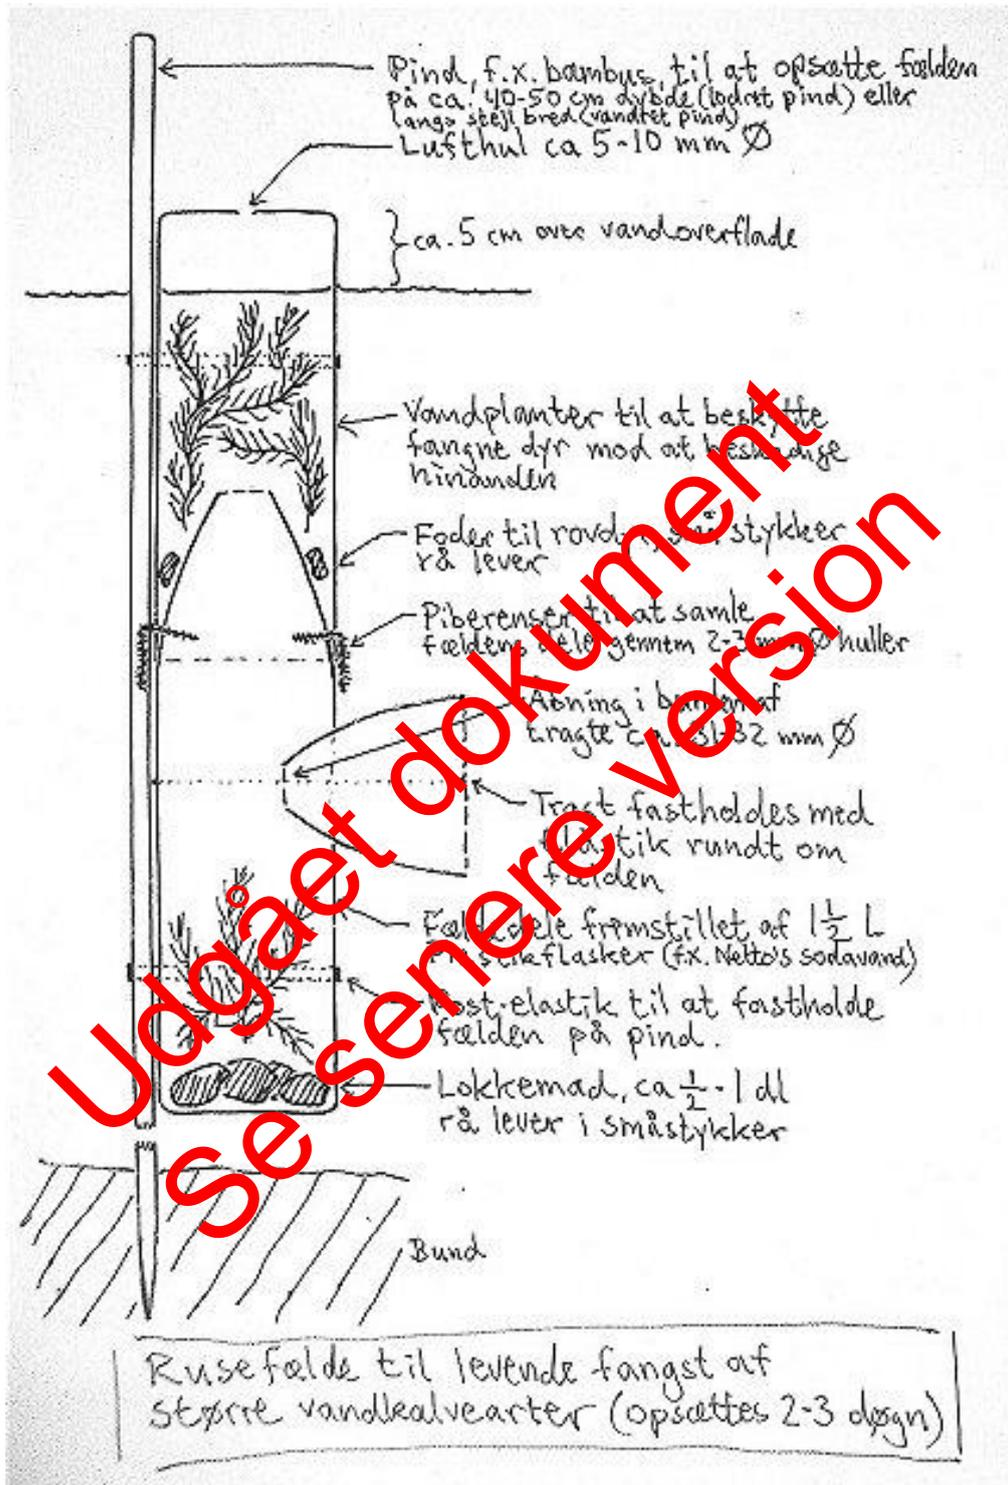 Pind, f.x. bambus, til at opsætte fælden
på ca. 40-50 cm dybde (lodret pind) eller
langs stejl bred (vandret pind)
Lufthul ca 5-10 mm Ø
ca. 5 cm over vandoverflade
Vandplanter til at beskytte
fangne dyr mod at beskadige
hinanden
Foder til små stykker
rå lever
Piberenser til at samle
fældens dele gennem 2-3 mm Ø huller
Åbning i bunden af
tragte ca. 31-32 mm Ø
Tragt fastholdes med
elastik rundt om
fælden
Fældedele fremstillet af 1½ L
plastikflasker (fx. Netto's sodavand)
Post-elastik til at fastholde
fælden på pind.
Lokkemad, ca ½-1 dl
rå lever i småstykker
Bund
Rusefælde til levende fangst af
større vandkalvearter (opsættes 2-3 døgn)
Udgået dokument
Se senere version